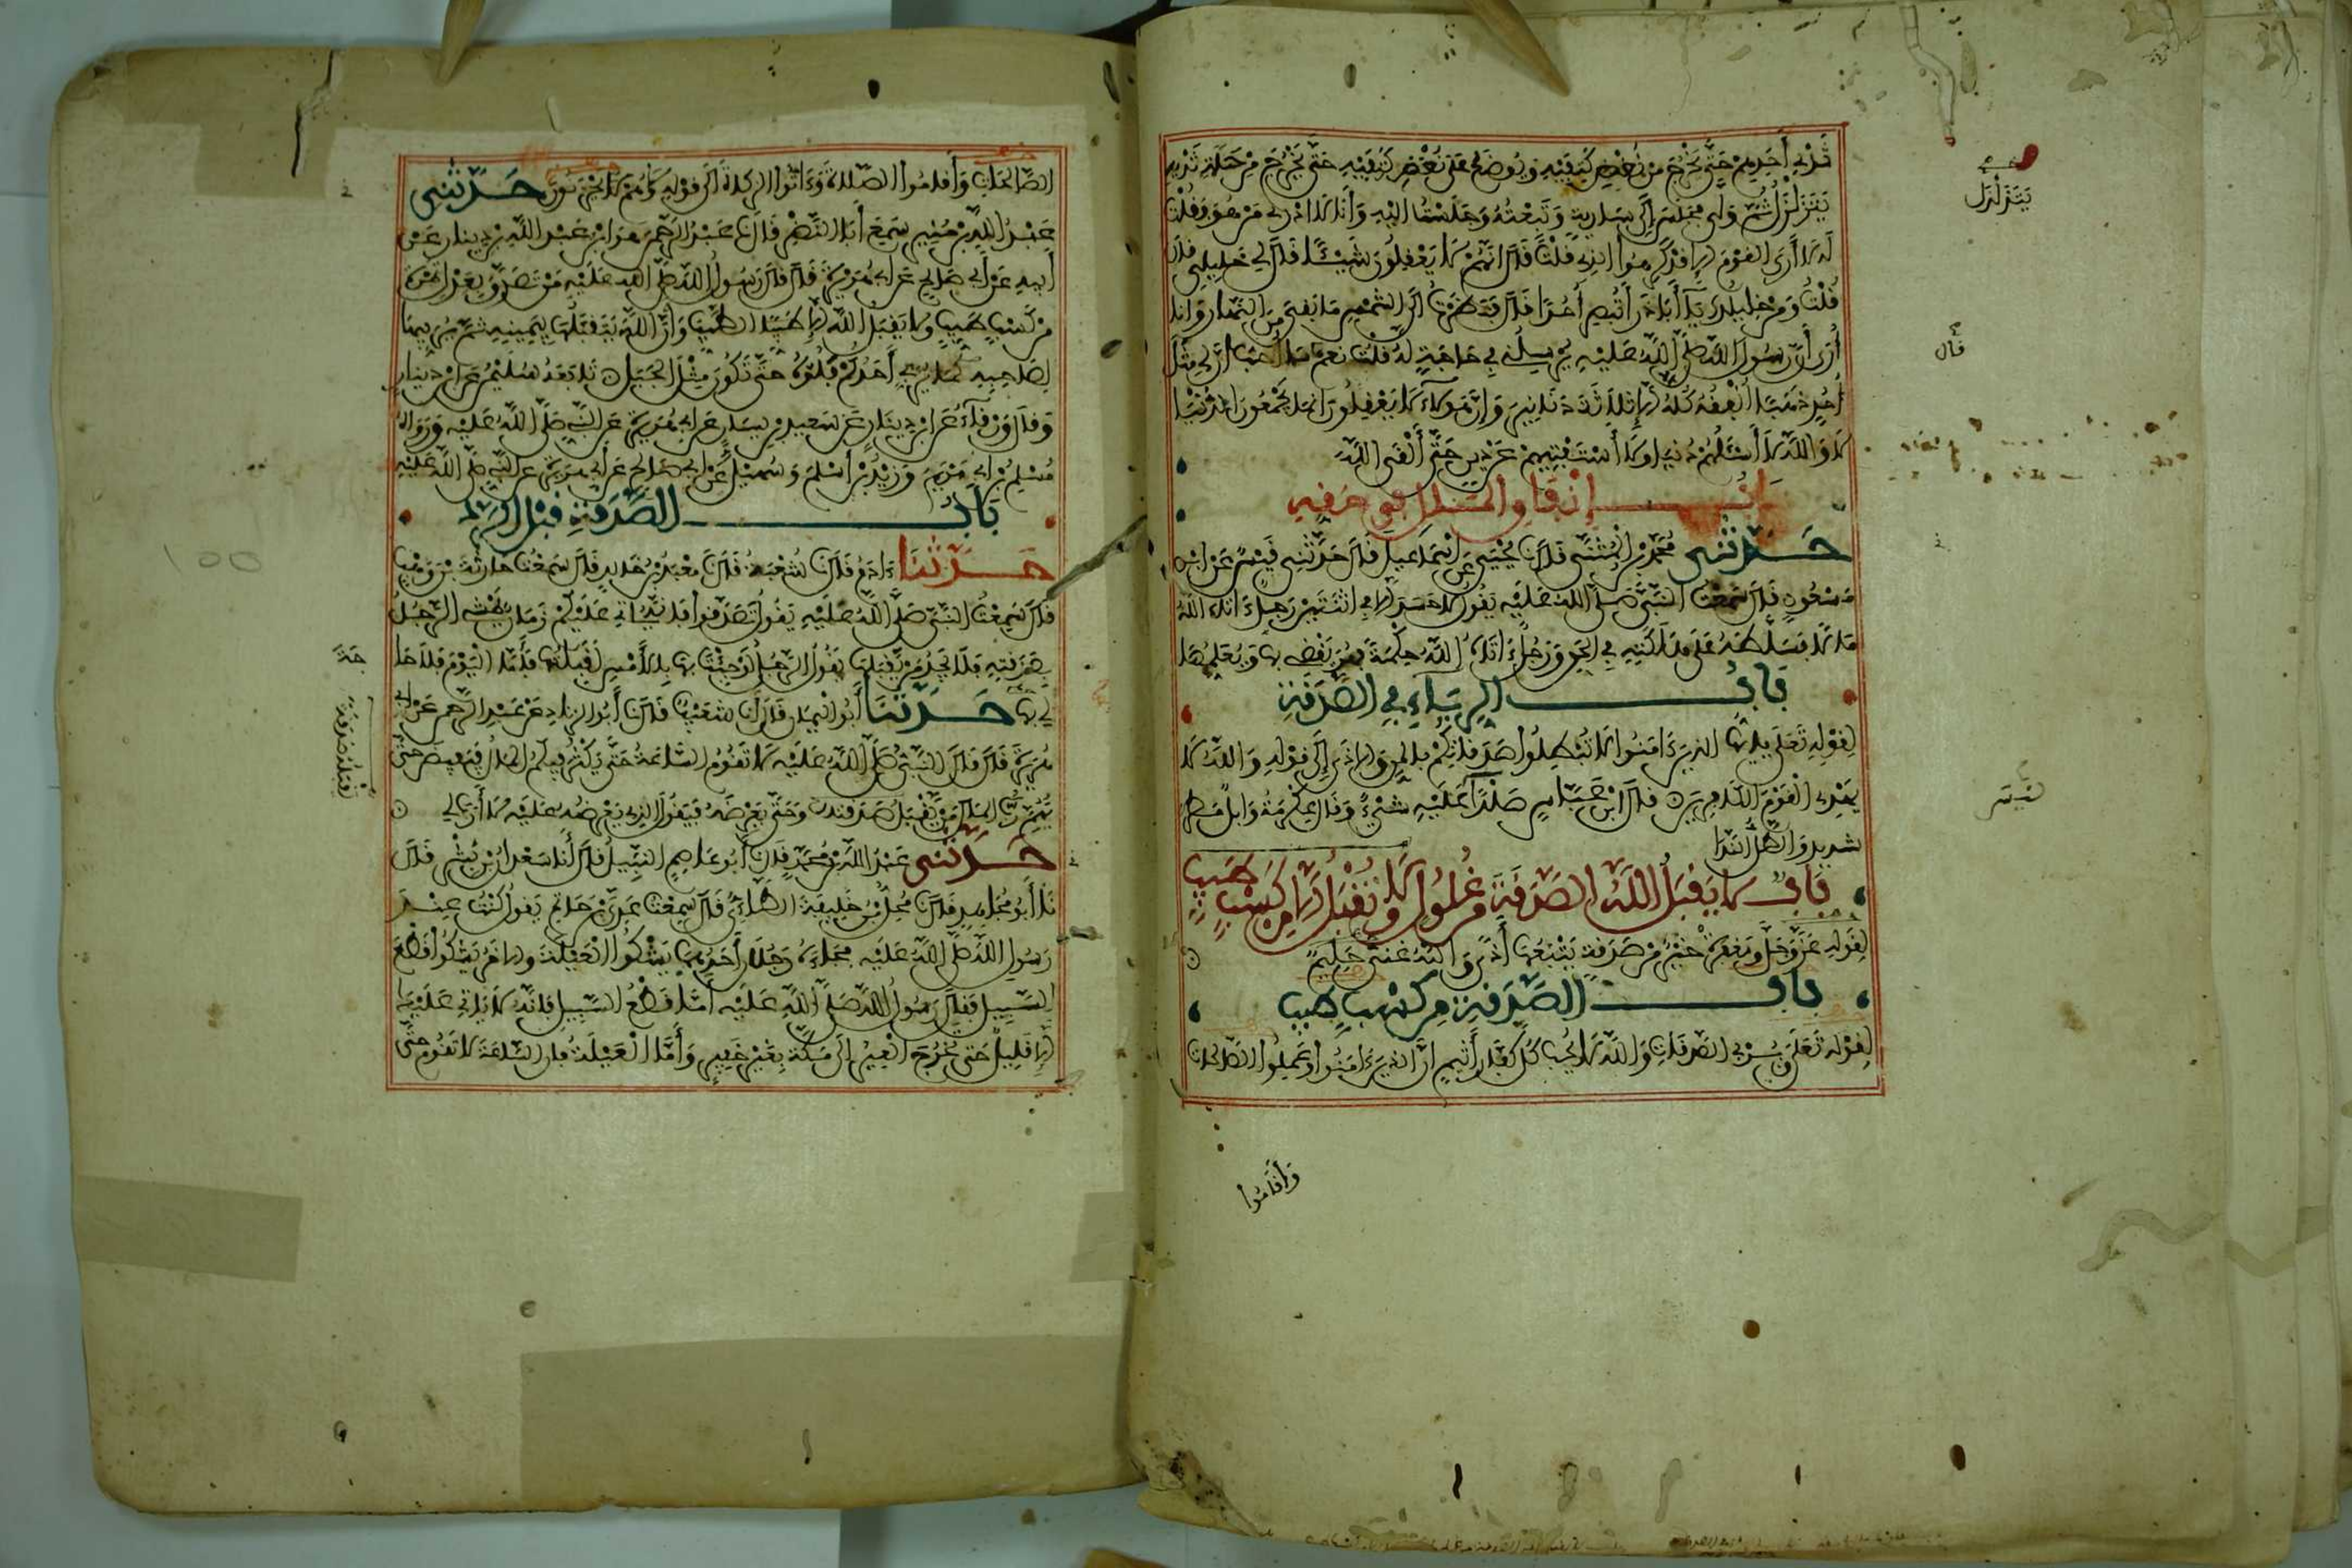 ثَدْيِ أَحَدِهِمْ حَتَّى يَخْرُجَ مِنْ نُغْضِ كَتِفَيْهِ وَيُوضَعُ عَلَى نُغْضِ كَتِفَيْهِ حَتَّى يَخْرُجَ مِنْ حَلَمَةِ ثَدْيِهِ
يَتَزَلْزَلُ ثُمَّ وَلَّى فَجَلَسَ إِلَى سَارِيَةٍ وَتَبِعْتُهُ وَجَلَسْتُ إِلَيْهِ وَأَنَا لَا أَدْرِي مَنْ هُوَ فَقُلْتُ
لَهُ لَا أَرَى الْقَوْمَ إِلَّا قَدْ كَرِهُوا الَّذِي قُلْتَ قَالَ إِنَّهُمْ لَا يَعْقِلُونَ شَيْئًا قَالَ لِي خَلِيلِي قَالَ
قُلْتُ وَمَنْ خَلِيلُكَ يَا أَبَا ذَرٍّ أَتُبْصِرُ أُحُدًا قَالَ فَنَظَرْتُ إِلَى الشَّمْسِ مَا بَقِيَ مِنَ النَّهَارِ وَأَنَا
أُرَى أَنَّ رَسُولَ اللَّهِ صَلَّى اللَّهُ عَلَيْهِ يُرْسِلُنِي فِي حَاجَةٍ لَهُ قُلْتُ نَعَمْ قَالَ مَا أُحِبُّ أَنَّ لِي مِثْلَ
أُحُدٍ ذَهَبًا أُنْفِقُهُ كُلَّهُ إِلَّا ثَلَاثَةَ دَنَانِيرَ وَإِنَّ هَؤُلَاءِ لَا يَعْقِلُونَ إِنَّمَا يَجْمَعُونَ الدُّنْيَا
لَا وَاللَّهِ لَا أَسْأَلُهُمْ دُنْيَا وَلَا أَسْتَفْتِيهِمْ عَنْ دِينٍ حَتَّى أَلْقَى اللَّهَ
بَابُ إِنْفَاقِ الْمَالِ فِي حَقِّهِ
حَدَّثَنِي مُحَمَّدُ بْنُ الْمُثَنَّى قَالَ نَا يَحْيَى عَنْ إِسْمَاعِيلَ قَالَ حَدَّثَنِي قَيْسٌ عَنِ ابْنِ
مَسْعُودٍ قَالَ سَمِعْتُ النَّبِيَّ صَلَّى اللَّهُ عَلَيْهِ يَقُولُ لَا حَسَدَ إِلَّا فِي اثْنَتَيْنِ رَجُلٌ آتَاهُ اللَّهُ
مَالًا فَسَلَّطَهُ عَلَى هَلَكَتِهِ فِي الْحَقِّ وَرَجُلٌ آتَاهُ اللَّهُ حِكْمَةً فَهُوَ يَقْضِي بِهَا وَيُعَلِّمُهَا
بَابُ الرِّيَاءِ فِي الصَّدَقَةِ
لِقَوْلِهِ تَعَالَى يَا أَيُّهَا الَّذِينَ آمَنُوا لَا تُبْطِلُوا صَدَقَاتِكُمْ بِالْمَنِّ وَالْأَذَى إِلَى قَوْلِهِ وَاللَّهُ لَا
يَهْدِي الْقَوْمَ الْكَافِرِينَ قَالَ ابْنُ عَبَّاسٍ صَلْدًا لَيْسَ عَلَيْهِ شَيْءٌ وَقَالَ عِكْرِمَةُ وَابِلٌ مَطَرٌ
شَدِيدٌ وَالطَّلُّ النَّدَا
بَابٌ لَا يَقْبَلُ اللَّهُ الصَّدَقَةَ مِنْ غُلُولٍ وَلَا تُقْبَلُ إِلَّا مِنْ كَسْبٍ طَيِّبٍ
لِقَوْلِهِ عَزَّ وَجَلَّ وَمَغْفِرَةٌ خَيْرٌ مِنْ صَدَقَةٍ يَتْبَعُهَا أَذًى وَاللَّهُ غَنِيٌّ حَلِيمٌ
بَابُ الصَّدَقَةِ مِنْ كَسْبٍ طَيِّبٍ
لِقَوْلِهِ تَعَالَى وَيُرْبِي الصَّدَقَاتِ وَاللَّهُ لَا يُحِبُّ كُلَّ كَفَّارٍ أَثِيمٍ إِنَّ الَّذِينَ آمَنُوا وَعَمِلُوا الصَّالِحَاتِ
وَأَقَامُوا
يَتَزَلْزَلُ
قَالَ
لَيْسَ
الصَّالِحَاتِ وَأَقَامُوا الصَّلَاةَ وَآتَوُا الزَّكَاةَ إِلَى قَوْلِهِ وَلَا هُمْ يَحْزَنُونَ حَدَّثَنِي
عَبْدُ اللَّهِ بْنُ مُنِيرٍ سَمِعَ أَبَا النَّضْرِ قَالَ نَا عَبْدُ الرَّحْمَنِ هُوَ ابْنُ عَبْدِ اللَّهِ بْنِ دِينَارٍ عَنْ
أَبِيهِ عَنْ أَبِي صَالِحٍ عَنْ أَبِي هُرَيْرَةَ قَالَ قَالَ رَسُولُ اللَّهِ صَلَّى اللَّهُ عَلَيْهِ مَنْ تَصَدَّقَ بِعَدْلِ تَمْرَةٍ
مِنْ كَسْبٍ طَيِّبٍ وَلَا يَقْبَلُ اللَّهُ إِلَّا الطَّيِّبَ وَإِنَّ اللَّهَ يَتَقَبَّلُهَا بِيَمِينِهِ ثُمَّ يُرَبِّيهَا
لِصَاحِبِهِ كَمَا يُرَبِّي أَحَدُكُمْ فَلُوَّهُ حَتَّى تَكُونَ مِثْلَ الْجَبَلِ تَابَعَهُ سُلَيْمَانُ عَنِ ابْنِ دِينَارٍ
وَقَالَ وَرْقَاءُ عَنِ ابْنِ دِينَارٍ عَنْ سَعِيدِ بْنِ يَسَارٍ عَنْ أَبِي هُرَيْرَةَ عَنِ النَّبِيِّ صَلَّى اللَّهُ عَلَيْهِ وَرَوَاهُ
مُسْلِمُ بْنُ أَبِي مَرْيَمَ وَزَيْدُ بْنُ أَسْلَمَ وَسُهَيْلٌ عَنْ أَبِي صَالِحٍ عَنْ أَبِي هُرَيْرَةَ عَنِ النَّبِيِّ صَلَّى اللَّهُ عَلَيْهِ
بَابُ الصَّدَقَةِ قَبْلَ الرَّدِّ
حَدَّثَنَا آدَمُ قَالَ نَا شُعْبَةُ قَالَ نَا مَعْبَدُ بْنُ خَالِدٍ قَالَ سَمِعْتُ حَارِثَةَ بْنَ وَهْبٍ
قَالَ سَمِعْتُ النَّبِيَّ صَلَّى اللَّهُ عَلَيْهِ يَقُولُ تَصَدَّقُوا فَإِنَّهُ يَأْتِي عَلَيْكُمْ زَمَانٌ يَمْشِي الرَّجُلُ
بِصَدَقَتِهِ فَلَا يَجِدُ مَنْ يَقْبَلُهَا يَقُولُ الرَّجُلُ لَوْ جِئْتَ بِهَا بِالْأَمْسِ لَقَبِلْتُهَا فَأَمَّا الْيَوْمَ فَلَا حَاجَةَ
لِي بِهَا حَدَّثَنَا أَبُو الْيَمَانِ قَالَ أَنَا شُعَيْبٌ قَالَ نَا أَبُو الزِّنَادِ عَنْ عَبْدِ الرَّحْمَنِ عَنْ أَبِي
هُرَيْرَةَ قَالَ قَالَ النَّبِيُّ صَلَّى اللَّهُ عَلَيْهِ لَا تَقُومُ السَّاعَةُ حَتَّى يَكْثُرَ فِيكُمُ الْمَالُ فَيَفِيضَ حَتَّى
يُهِمَّ رَبَّ الْمَالِ مَنْ يَقْبَلُ صَدَقَتَهُ وَحَتَّى يَعْرِضَهُ فَيَقُولَ الَّذِي يَعْرِضُهُ عَلَيْهِ لَا أَرَبَ لِي
حَدَّثَنِي عَبْدُ اللَّهِ بْنُ مُحَمَّدٍ قَالَ نَا أَبُو عَاصِمٍ النَّبِيلُ قَالَ أَنَا سَعْدَانُ بْنُ بِشْرٍ قَالَ
نَا أَبُو مُجَاهِدٍ قَالَ نَا مُحِلُّ بْنُ خَلِيفَةَ الطَّائِيُّ قَالَ سَمِعْتُ عَدِيَّ بْنَ حَاتِمٍ يَقُولُ كُنْتُ عِنْدَ
رَسُولِ اللَّهِ صَلَّى اللَّهُ عَلَيْهِ فَجَاءَهُ رَجُلَانِ أَحَدُهُمَا يَشْكُو الْعَيْلَةَ وَالْآخَرُ يَشْكُو قَطْعَ
السَّبِيلِ فَقَالَ رَسُولُ اللَّهِ صَلَّى اللَّهُ عَلَيْهِ أَمَّا قَطْعُ السَّبِيلِ فَإِنَّهُ لَا يَأْتِي عَلَيْكَ
إِلَّا قَلِيلٌ حَتَّى تَخْرُجَ الْعِيرُ إِلَى مَكَّةَ بِغَيْرِ خَفِيرٍ وَأَمَّا الْعَيْلَةُ فَإِنَّ السَّاعَةَ لَا تَقُومُ حَتَّى